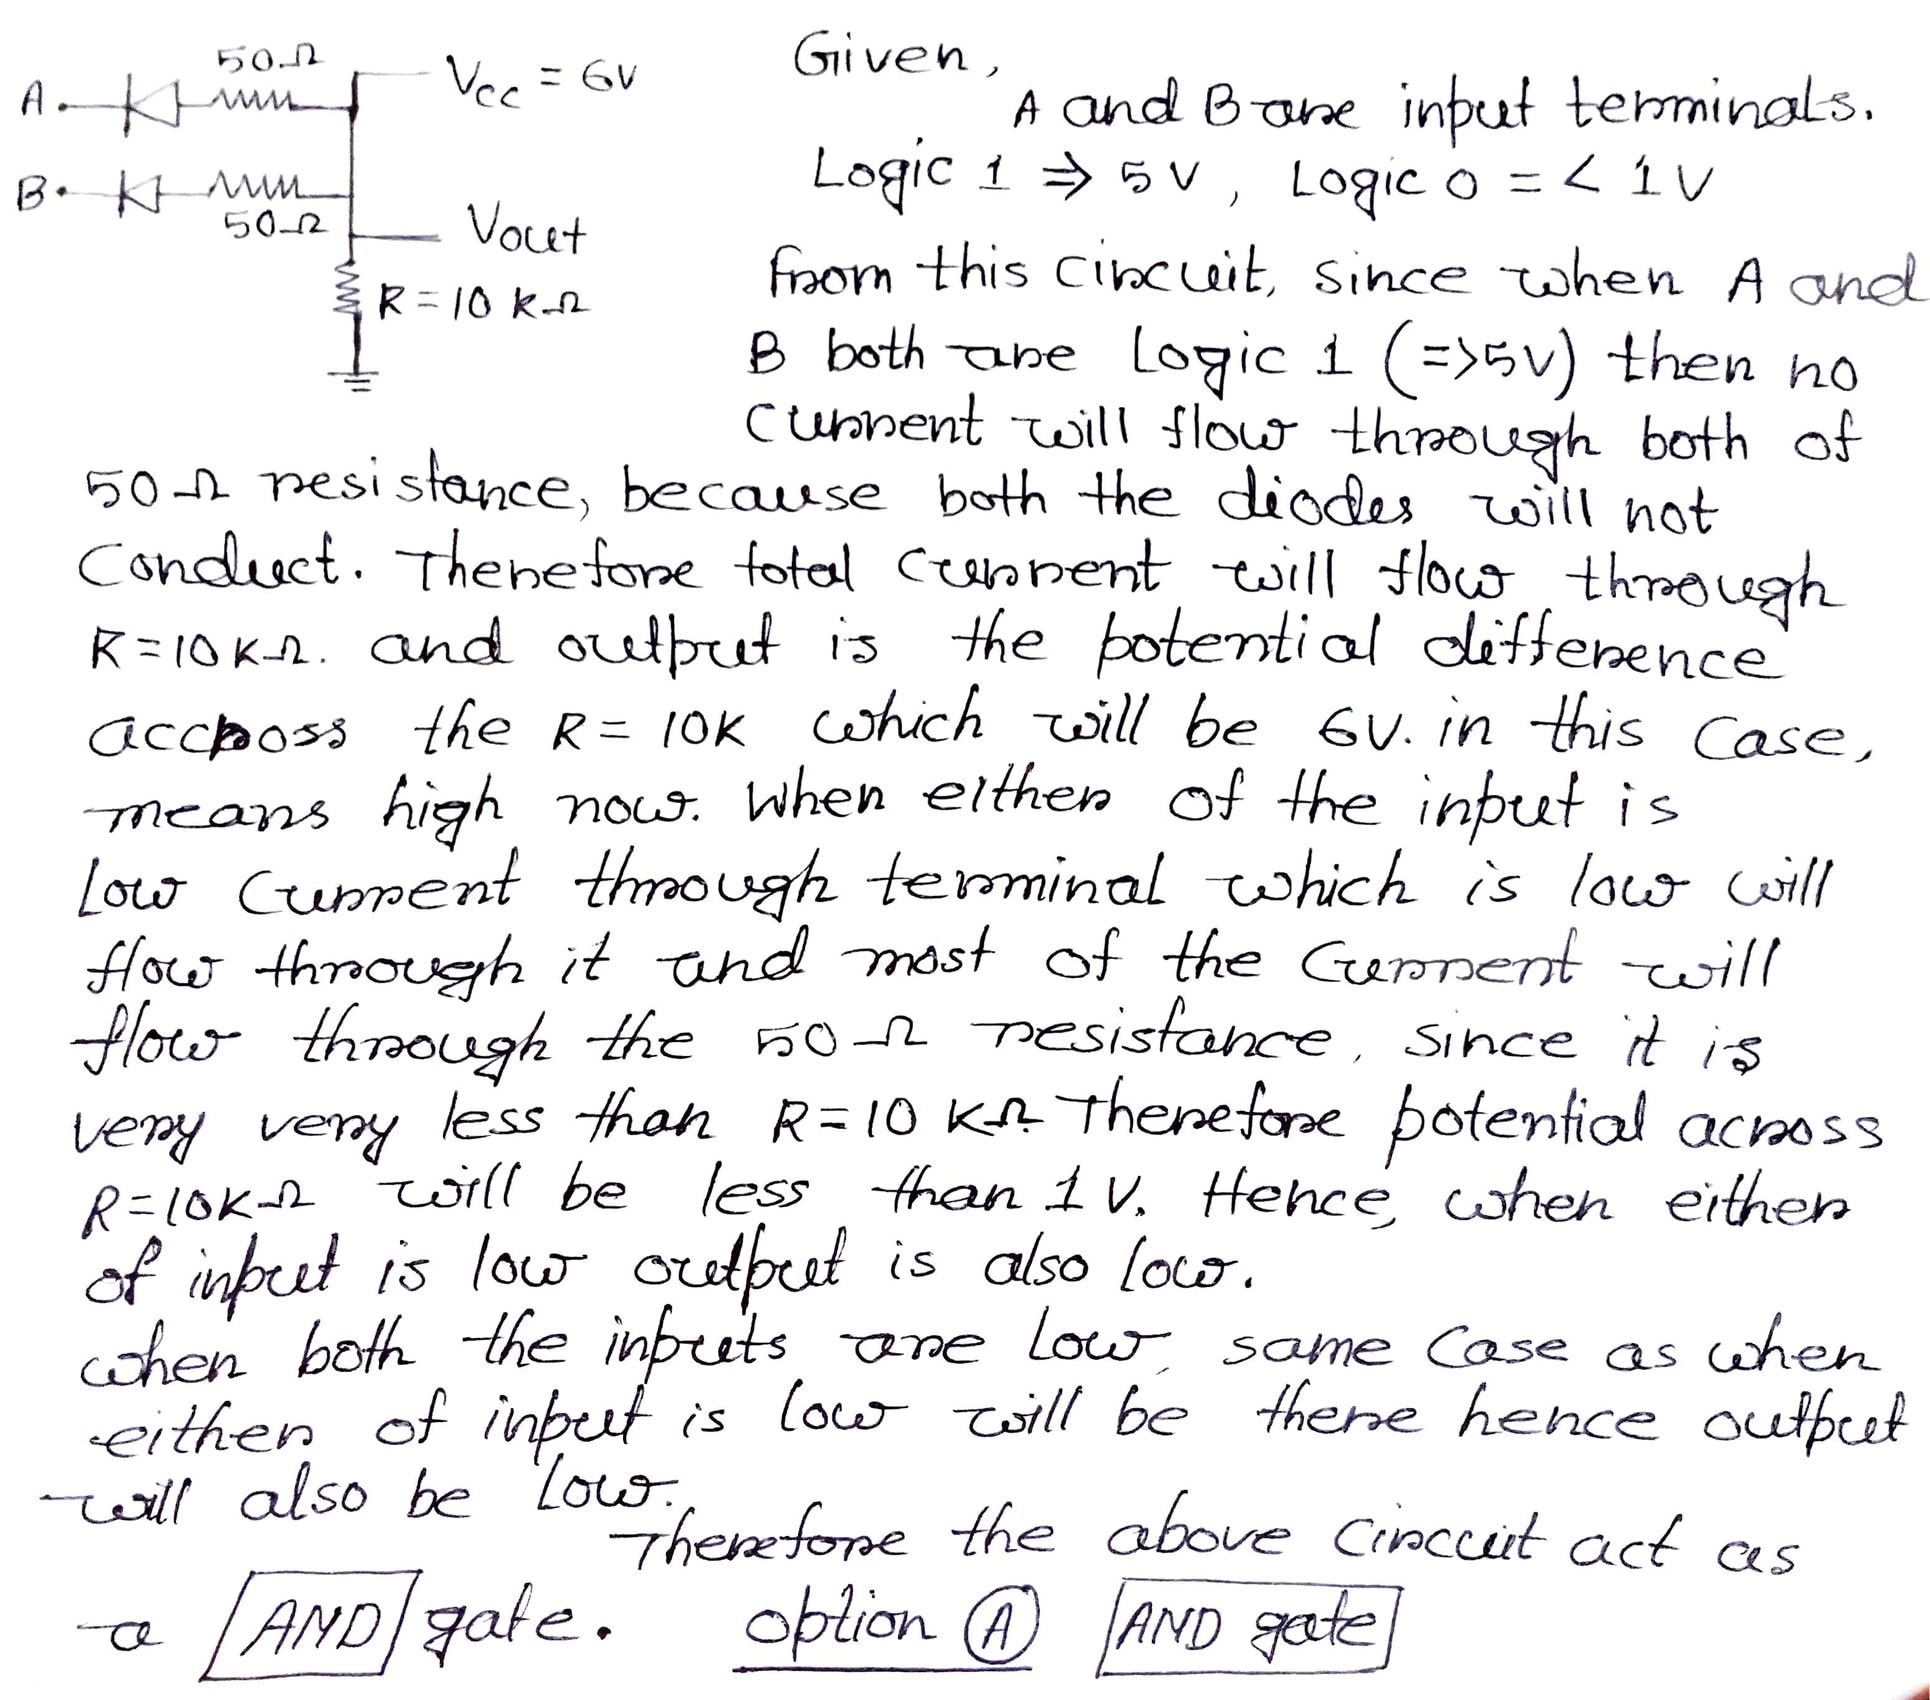 50Ω
A.
Vcc = 6V
B.
50Ω
Vout
R = 10 kΩ
Given,
A and B are input terminals.
Logic 1 ⇒ 5V, Logic 0 = < 1V
from this circuit, since when A and
B both are Logic 1 (=>5V) then no
current will flow through both of
50Ω resistance, because both the diodes will not
Conduct. Therefore total current will flow through
R=10KΩ. and output is the potential difference
accross the R= 10K which will be 6V. in this Case,
means high now. When either of the input is
Low Current through terminal which is low will
flow through it and most of the Current will
flow through the 50Ω resistance, since it is
very very less than R=10 KΩ. Therefore potential across
R=10KΩ will be less than 1V. Hence, when either
of input is low output is also low.
when both the inputs are Low, same Case as when
either of input is low will be there hence output
will also be Low.
Therefore the above Circuit act as
a AND gate. option A AND gate